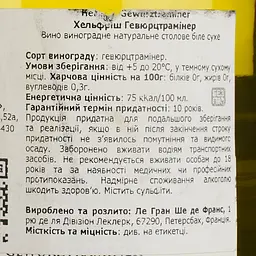 Gewurztraminer
Хельфріш Гевюрцтрамінер
Вино виноградне натуральне столове біле сухе
Сорт винограду: гевюрцтрамінер.
Умови зберігання: від +5 до 20°С, у темному сухому
місці. Харчова цінність на 100г: білків 0г, жирів 0г,
вуглеводів 0,3г.
Енергетична цінність: 75 кКал/100 мл.
Гарантійний термін придатності: 10 років.
Продукція придатна для подальшого зберігання
та реалізації, якщо в ній після закінчення строку
придатності не з'явилось помутніння та видимого
осаду. Заборонено вживати водіям транспортних
засобів. Не рекомендується вживати особам до 18
років та за наявності медичних або професійних
протипоказань. Надмірне споживання алкоголю
шкодить здоров'ю. Містить сульфіти.
Вироблено та розлито: Ле Гран Ше де Франс, 1
рю де ля Дівізіон Леклерк, 67290, Петерсбах, Франція.
Місткість та міцність: див. на етикетці.
,52а,
430